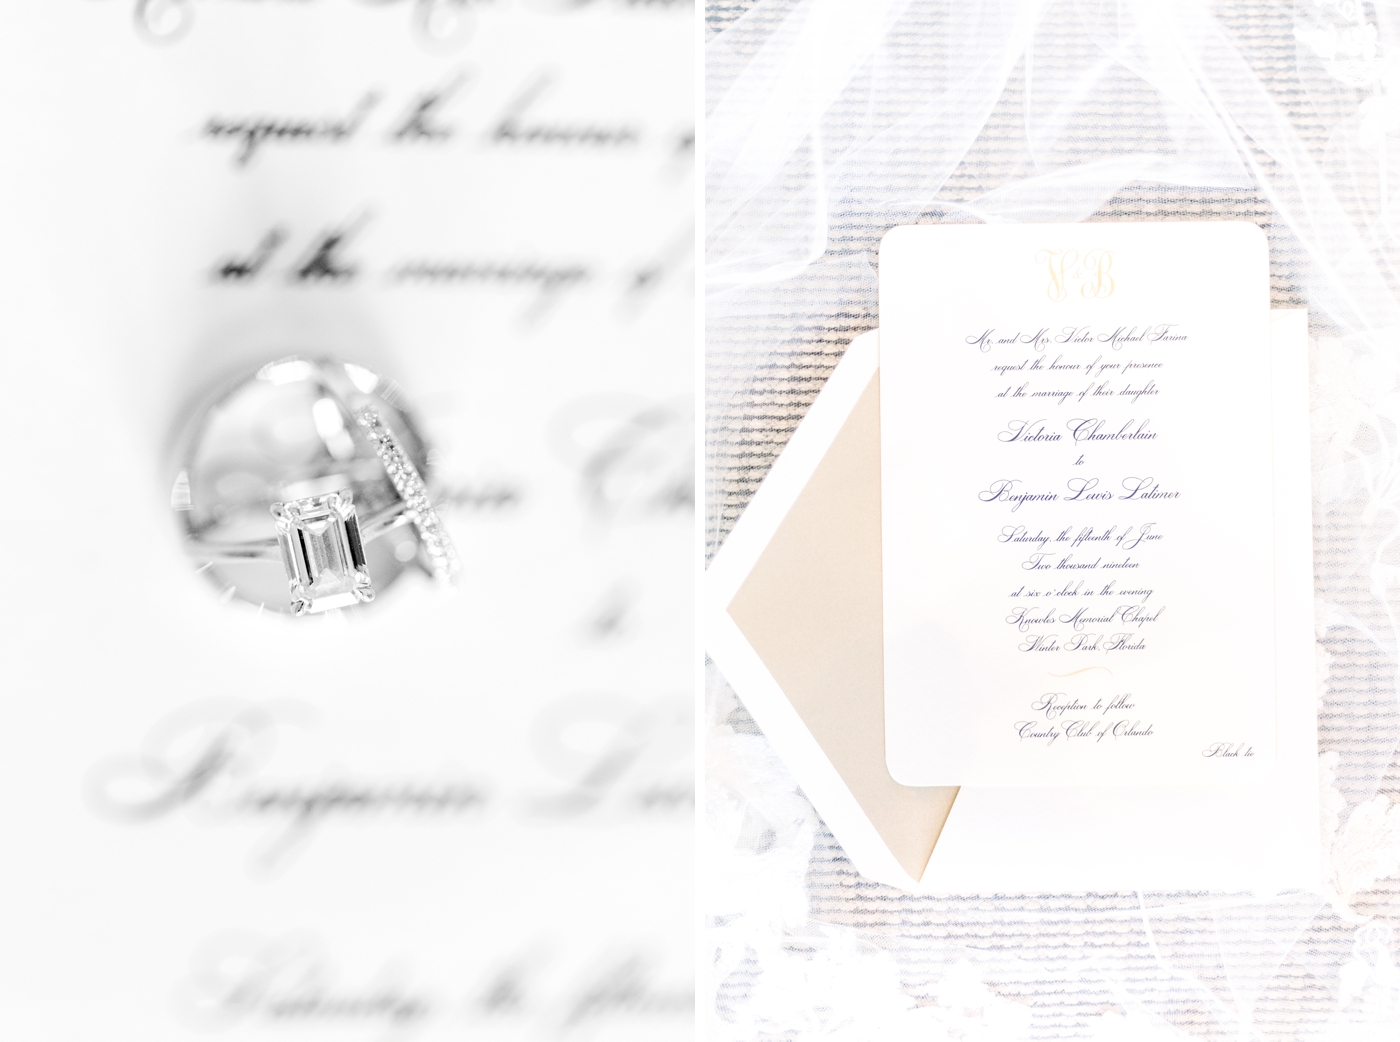 request the honour
at the marriage of
Benjamin
V B
Mr. and Mrs. Victor Michael Farina
request the honour of your presence
at the marriage of their daughter
Victoria Chamberlain
to
Benjamin Lewis Latimer
Saturday, the fifteenth of June
Two thousand nineteen
at six o'clock in the evening
Knowles Memorial Chapel
Winter Park, Florida
Reception to follow
Country Club of Orlando
Black tie